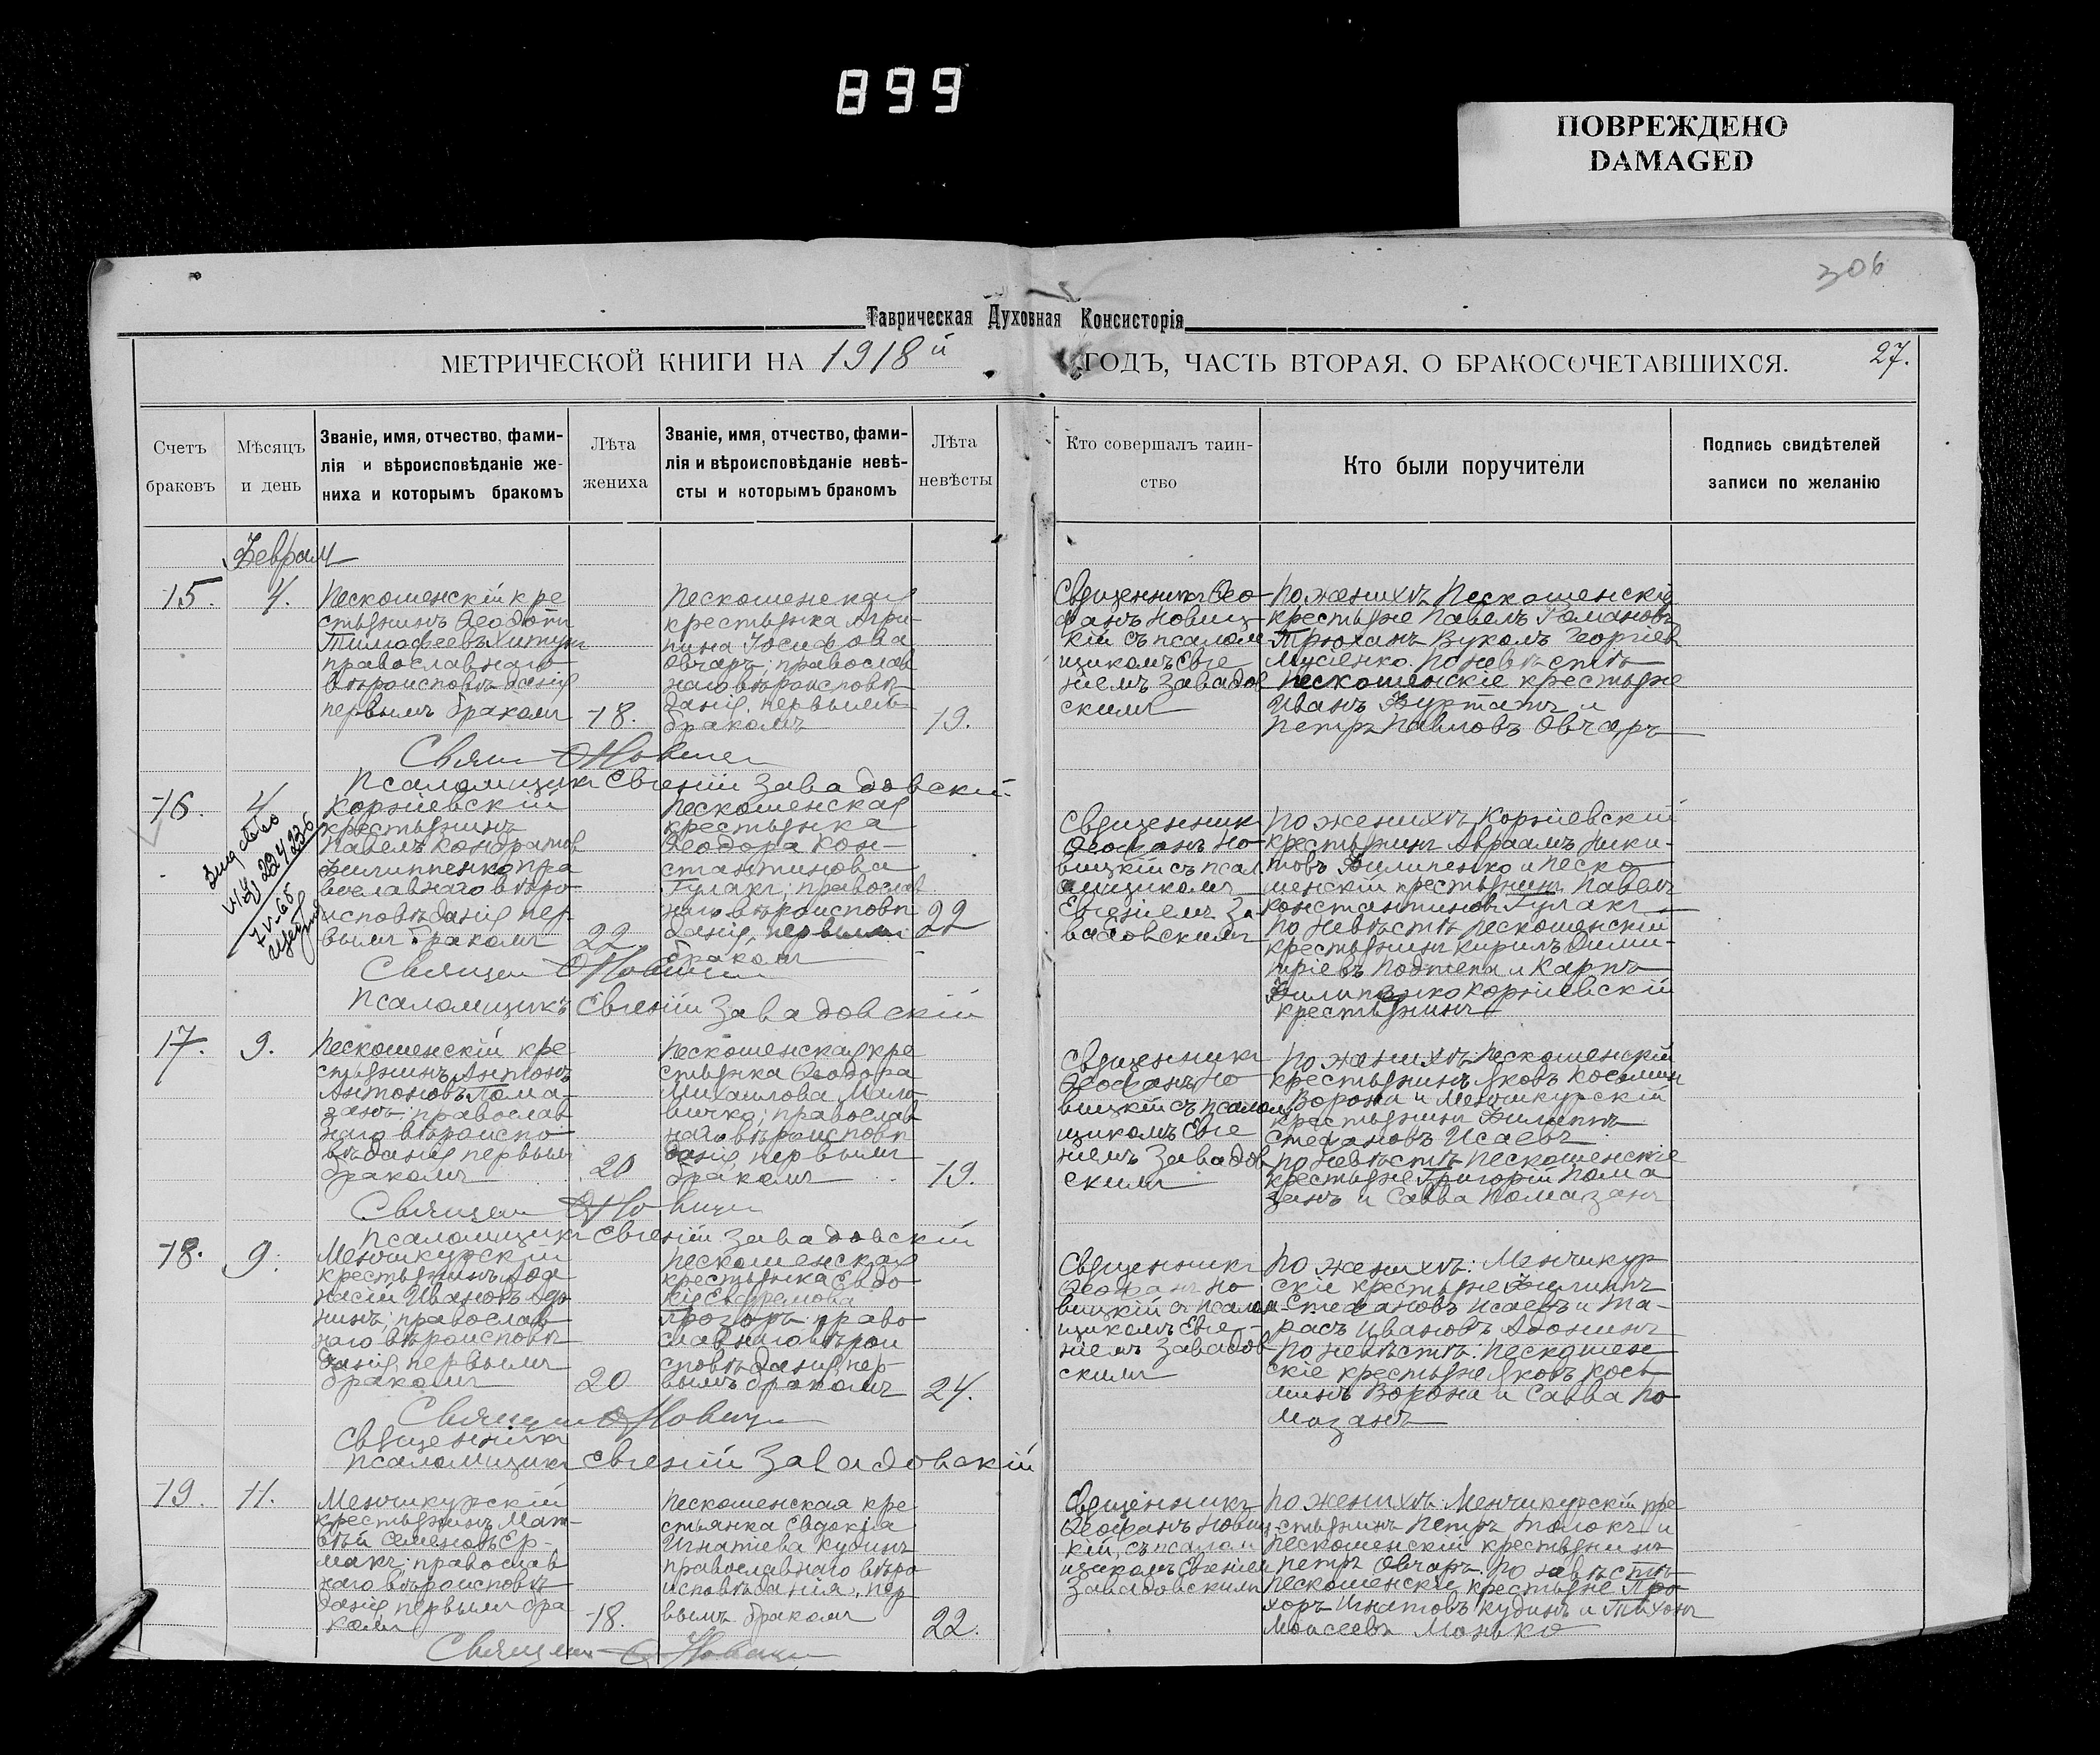 899
ПОВРЕЖДЕНО
DAMAGED
306
Таврическая Духовная Консисторія
МЕТРИЧЕСКОЙ КНИГИ НА 1918й ГОДЪ, ЧАСТЬ ВТОРАЯ, О БРАКОСОЧЕТАВШИХСЯ. 27.
Счетъ
браковъ
Мѣсяцъ
и день
Званіе, имя, отчество, фами-
лія и вѣроисповѣданіе же-
ниха и которымъ бракомъ
Лѣта
жениха
Званіе, имя, отчество, фами-
лія и вѣроисповѣданіе невѣ-
сты и которымъ бракомъ
Лѣта
невѣсты
Кто совершалъ таин-
ство
Кто были поручители
Подпись свидѣтелей
записи по желанію
Февраль
15.
4.
Пескошенскій кре
стьянинъ Ѳеодотъ
Тимофеевъ
православнаго
вѣроисповѣданія
первымъ бракомъ
18.
Пескошенская
крестьянка Агри-
пина Іосифова
Овчаръ; православ
наго вѣроисповѣ
данія, первымъ
бракомъ
19.
Священникъ Ѳео-
фанъ Новиц-
кій съ псалом
щикомъ Евге
ніемъ Завадов
скимъ
По женихѣ Пескошенскіе
крестьяне Павелъ Романовъ
Трюханъ Вуколъ Георгіев
Мусіенко. По невѣстѣ
Пескошенскіе крестьяне
Иванъ и
Петръ Павловъ Овчаръ
Псаломщикъ Евгеній Завадовскій
16.
4
224236
Корніевскій
крестьянинъ
Павелъ Кондратов
Филиппенко пра
вославнаго вѣро
исповѣданія пер
вымъ бракомъ
22
Пескошенская
крестьянка
Ѳеодора Кон-
стантинова
Гулакъ; православ
наго вѣроисповѣ
данія, первымъ
бракомъ
22
Священник
Ѳеофанъ Но-
вицкій съ псал
омщикомъ
Евгеніемъ За-
вадовскимъ
По женихѣ Корніевскій
крестьянинъ Авраамъ Ники-
товъ Филипенко и Песко-
шенскій крестьянинъ Павелъ
Константиновъ Гулакъ
По невѣстѣ Пескошенскій
крестьянинъ Кирилъ Дими-
тріевъ и Карпъ
Филипенко Корніевскій
крестьянинъ
Псаломщикъ Евгеній Завадовскій
17.
9.
Пескошенскій кре
стьянинъ Антонъ
Антоновъ Пома-
занъ; православ
наго вѣроиспо
вѣданія первым
бракомъ
20
Пескошенская кре
стьянка Ѳеодора
Михаилова Мало
вичко; православ
наго вѣроисповѣ
данія, первымъ
бракомъ
19.
Священникъ
Ѳеофанъ Но
вицкій съ псалом
щикомъ Евге
ніемъ Завадов
скимъ
По женихѣ: Пескошенскій
крестьянинъ Яковъ Косьмин
Ворона и Менчикурскій
крестьянинъ Филиппъ
Стефановъ Исаевъ.
По невѣстѣ Пескошенскіе
крестьяне Григорій Пома
занъ и Савва Помазанъ
Псаломщикъ Евгеній Завадовскій
18.
9.
Менчикурскій
крестьянинъ Аѳа
насій Ивановъ Адо
нинъ; православ
наго вѣроисповѣ
данія первымъ
бракомъ
20
Пескошенская
крестьянка Евдо
кія Евфремова
Прозоръ право
славнаго вѣрои
сповѣданія, пер-
вымъ бракомъ
24.
Священникъ
Ѳеофанъ Но
вицкій съ псалом
щикомъ Евге-
ніемъ Завадов
скимъ
По женихѣ: Менчикур
скіе крестьяне Филиппъ
Стефановъ Исаевъ и Та-
расъ Ивановъ Адонинъ
По невѣстѣ: Пескошен
скіе крестьяне Яковъ Кось
минъ Ворона и Савва По
мазанъ
Священникъ
Псаломщикъ Евгеній Завадовскій
19.
11.
Менчикурскій
крестьянинъ Мат-
вѣй Семеновъ Ер-
макъ; православ
наго вѣроисповѣ
данія первымъ бра
комъ
18.
Пескошенская кре
стьянка Евдокія
Игнатіева Кудинъ
православнаго вѣро
исповѣданія, пер
вымъ бракомъ
22.
Священникъ
Ѳеофанъ Новиц-
кій, съ псалом
щикомъ Евгеніем
Завадовскимъ
По женихѣ: Менчикурскій кре
стьянинъ Петръ Толокъ и
Пескошенскій крестьянинъ
Петръ Овчаръ. По невѣстѣ
Пескошенскіе крестьяне Про
хоръ Игнатовъ Кудинъ и Тихонъ
Моисеевъ Манько